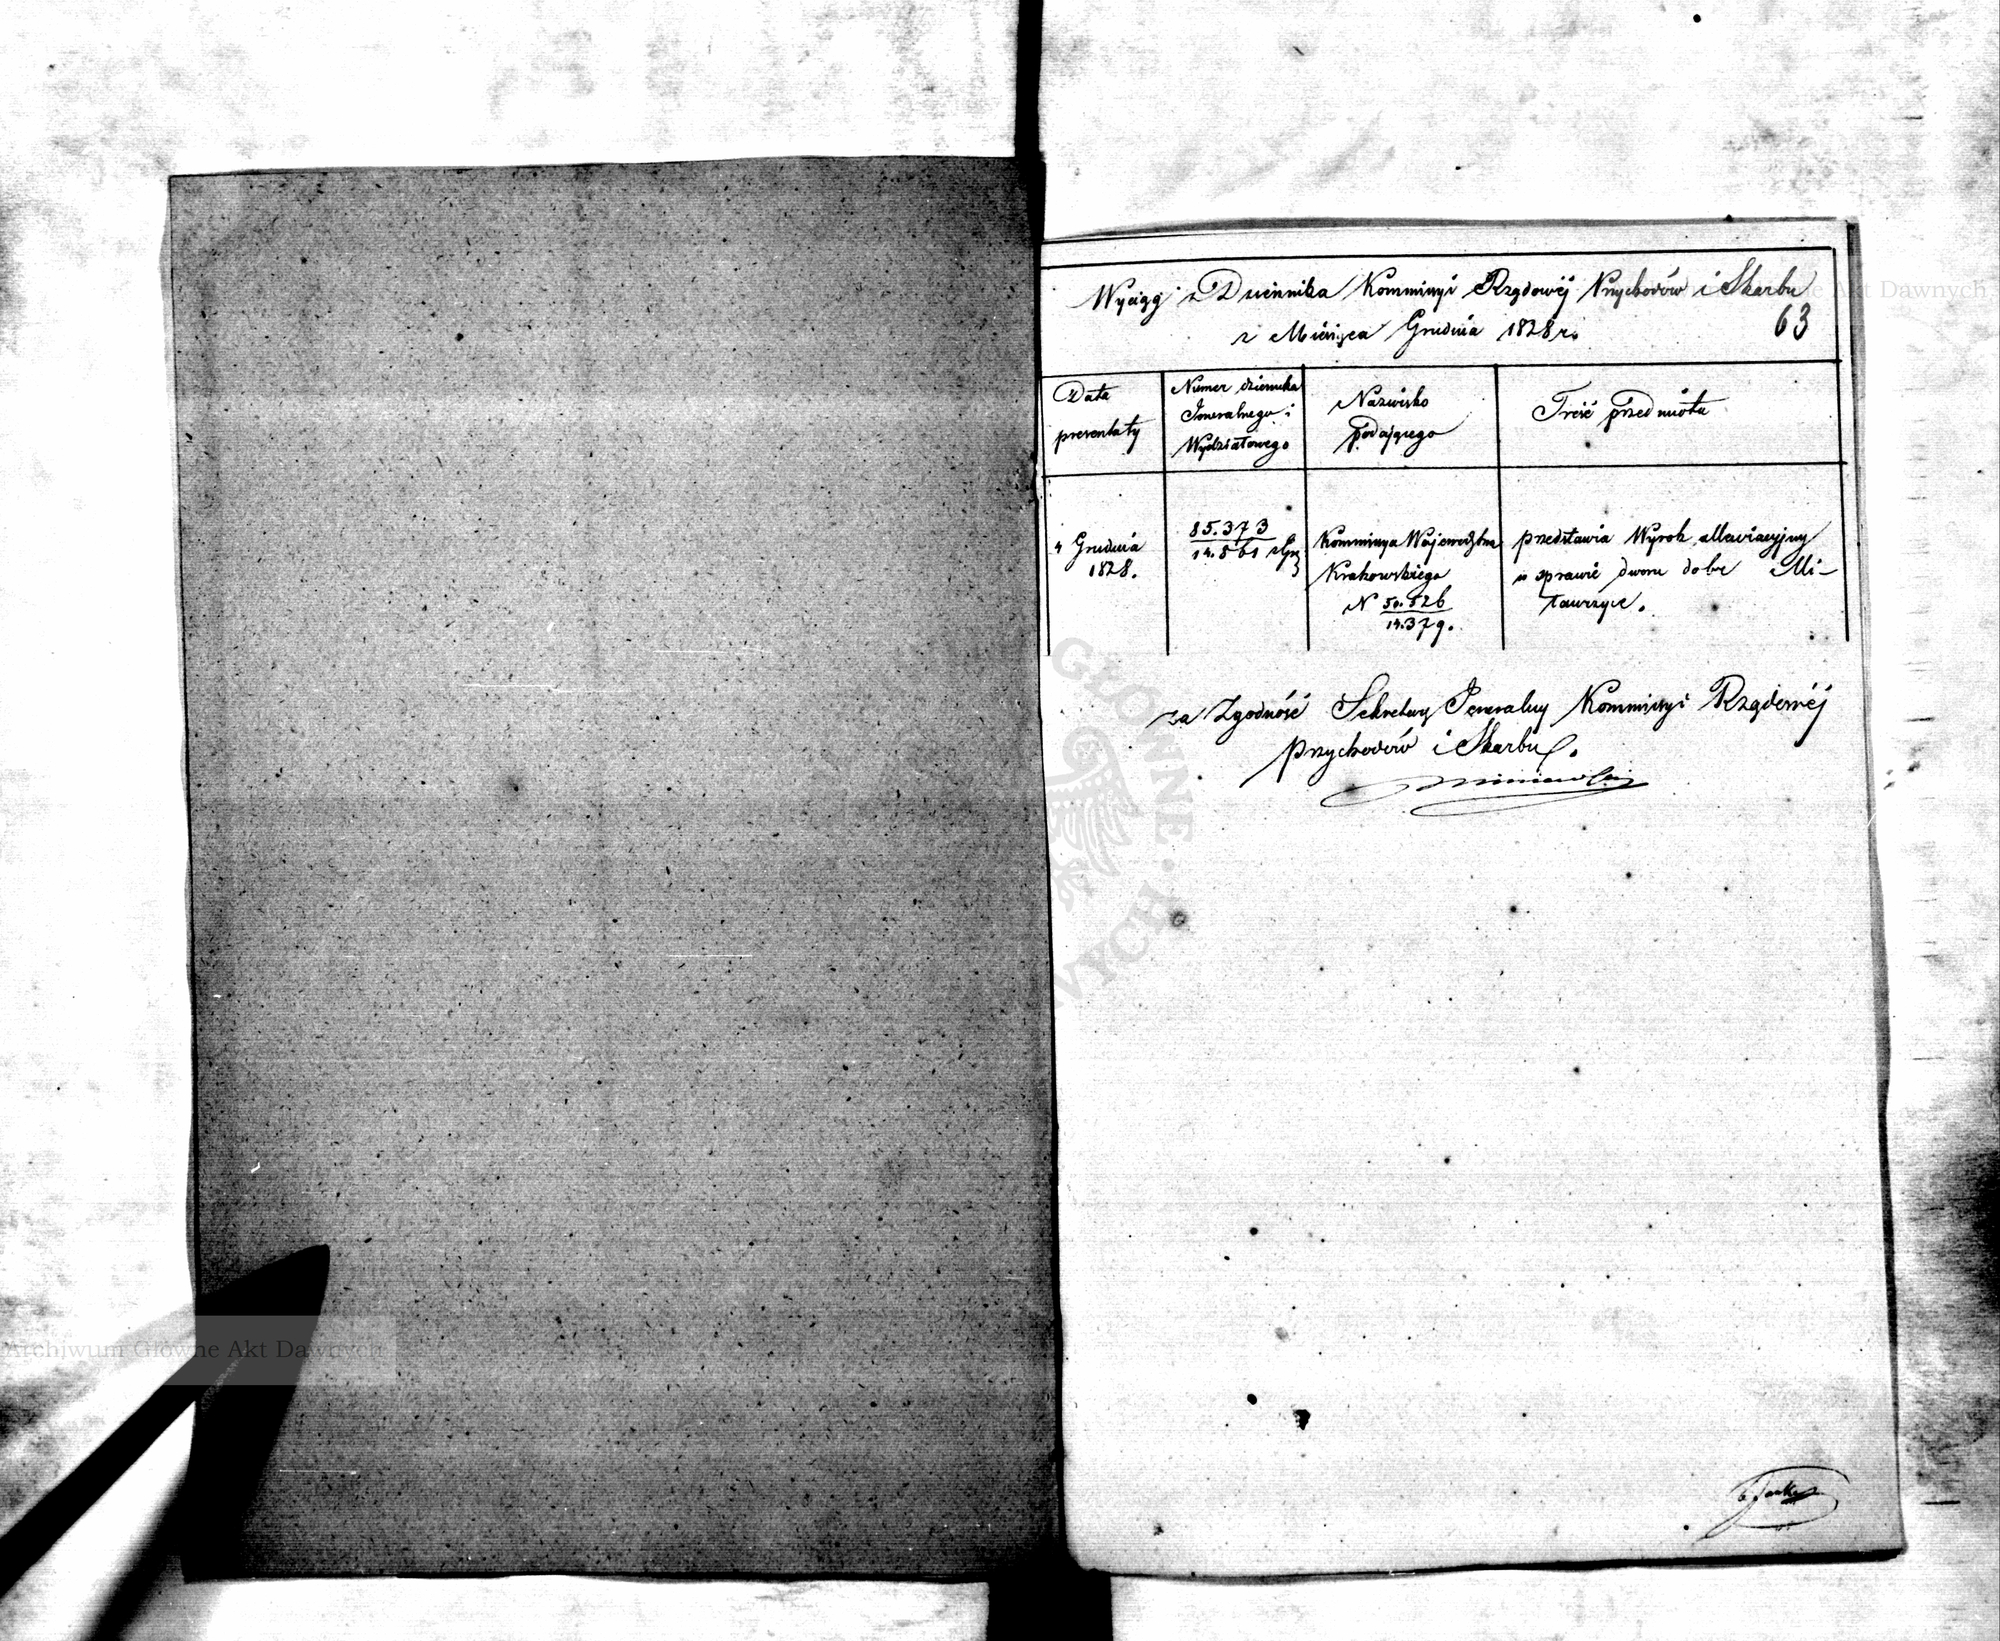 Wyciąg z Dziennika Kommissyi Rządowéj Przychodów i Skarbu
63
z Miesiąca Grudnia 1828 r.
Data prezentaty
Numer dziennika Jeneralnego i Wydziałowego
Nazwisko Podającego
Treść przedmiotu
4 Grudnia 1828.
85.373
14.561
Kommissya Województwa
Krakowskiego
N 50.526
14.379.
przedstawia Wyrok allewiacyjny
w sprawie dworu dobr Mi-
ławczyce.
za Zgodność Sekretarz Jeneralny Kommissyi Rządowéj
Przychodów i Skarbu.
GŁÓWNE
Archiwum Główne Akt Dawnych